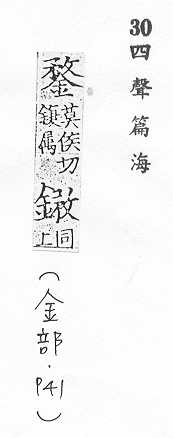 30四聲篇海
鍪
莫侯切
属
同
上
(金部.P41)